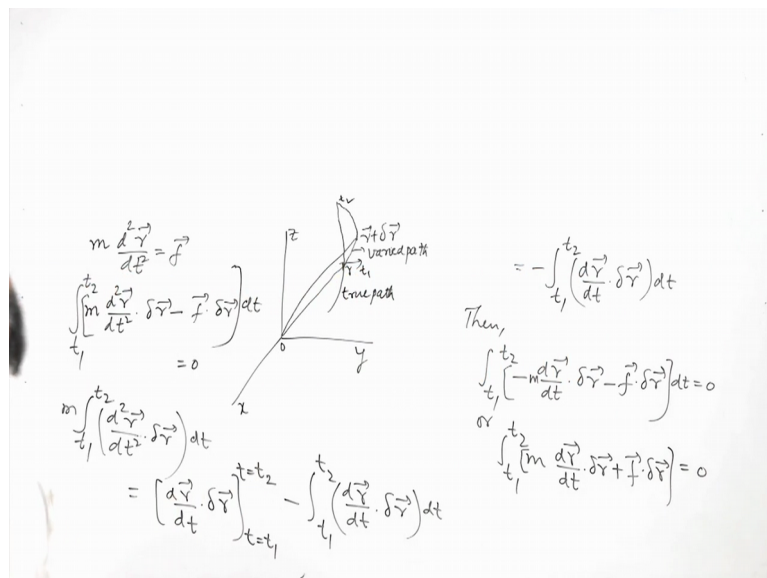 m d²r⃗/dt² = f⃗
∫_{t₁}^{t₂} [m d²r⃗/dt² · δr⃗ - f⃗ · δr⃗] dt
= 0
m ∫_{t₁}^{t₂} (d²r⃗/dt² · δr⃗) dt
= [dr⃗/dt · δr⃗]_{t=t₁}^{t=t₂} - ∫_{t₁}^{t₂} (dr⃗/dt · δr⃗) dt
z
r⃗+δr⃗
varied path
r⃗ t₁
true path
0
y
x
= - ∫_{t₁}^{t₂} (dr⃗/dt · δr⃗) dt
Then,
∫_{t₁}^{t₂} [-m dr⃗/dt · δr⃗ - f⃗ · δr⃗] dt = 0
or
∫_{t₁}^{t₂} [m dr⃗/dt · δr⃗ + f⃗ · δr⃗] = 0